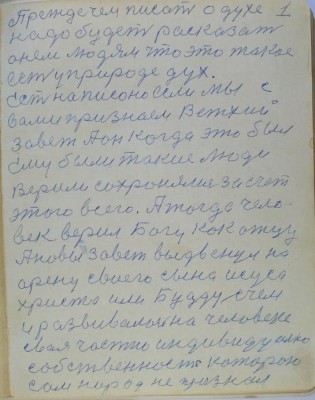 Прежде чем писат о духе 1
надо будет расказат
о нем людям что это такое
ест у природе дух.
Ест написоно если мы с
вами признаем Ветхий
завет А он когда это был
ему были такие люди
Верили сохроняли за счет
этого всего. А тогда чело-
век верил Богу как отцу
А новы завет выдвенул на
арену своего сына исуса
христа или Будду с чем
и развивалой на человеке
свая частно индивидуално
собственност каторою
сам народ не признал